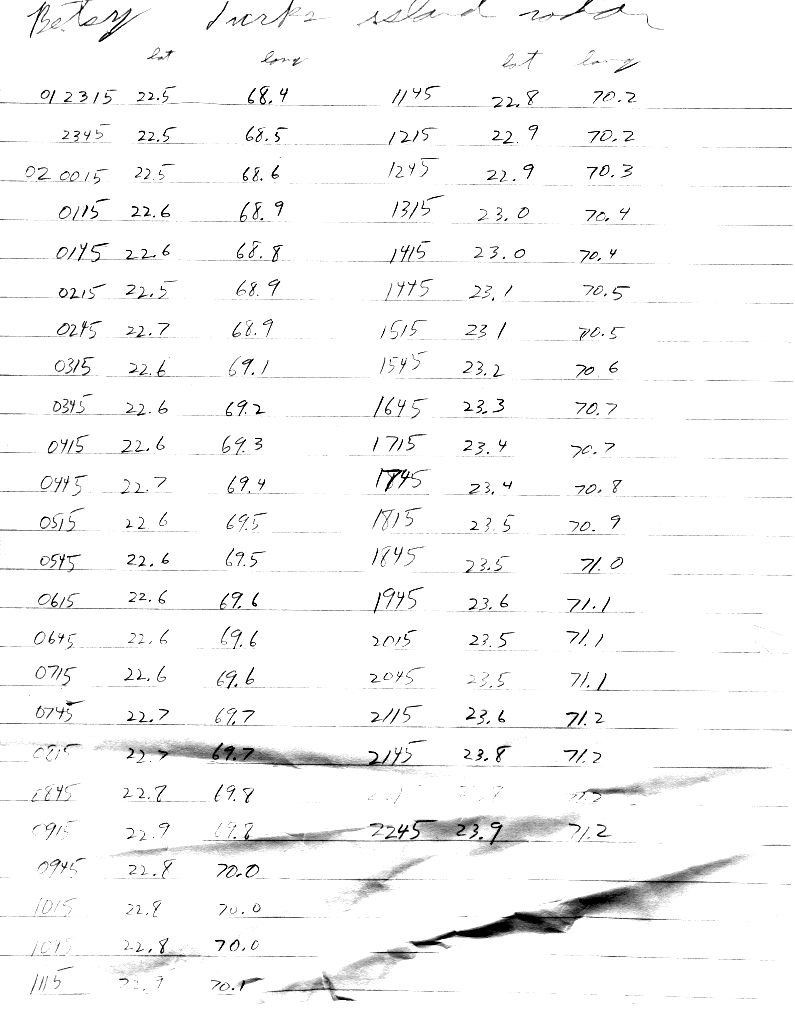 Betsy Turks island radar
lat long lat long
012315 22.5 68.4 1145 22.8 70.2
2345 22.5 68.5 1215 22.9 70.2
020015 22.5 68.6 1245 22.9 70.3
0115 22.6 68.9 1315 23.0 70.4
0145 22.6 68.8 1415 23.0 70.4
0215 22.5 68.9 1445 23.1 70.5
0245 22.7 68.9 1515 23 1 70.5
0315 22.6 69.1 1545 23.2 70 6
0345 22.6 69.2 1645 23.3 70.7
0415 22.6 69.3 1715 23.4 70.7
0445 22.7 69.4 1745 23.4 70.8
0515 22 6 69.5 1815 23.5 70.9
0545 22.6 69.5 1845 23.5 71.0
0615 22.6 69.6 1945 23.6 71.1
0645 22.6 69.6 2015 23.5 71.1
0715 22.6 69.6 2045 23.5 71.1
0745 22.7 69.7 2115 23.6 71.2
0815 22.7 69.7 2145 23.8 71.2
0845 22.8 69.8
0915 22.9 69.8 2245 23.9 71.2
0945 22.8 70.0
1015 22.8 70.0
1045 22.8 70.0
1115 22.9 70.1